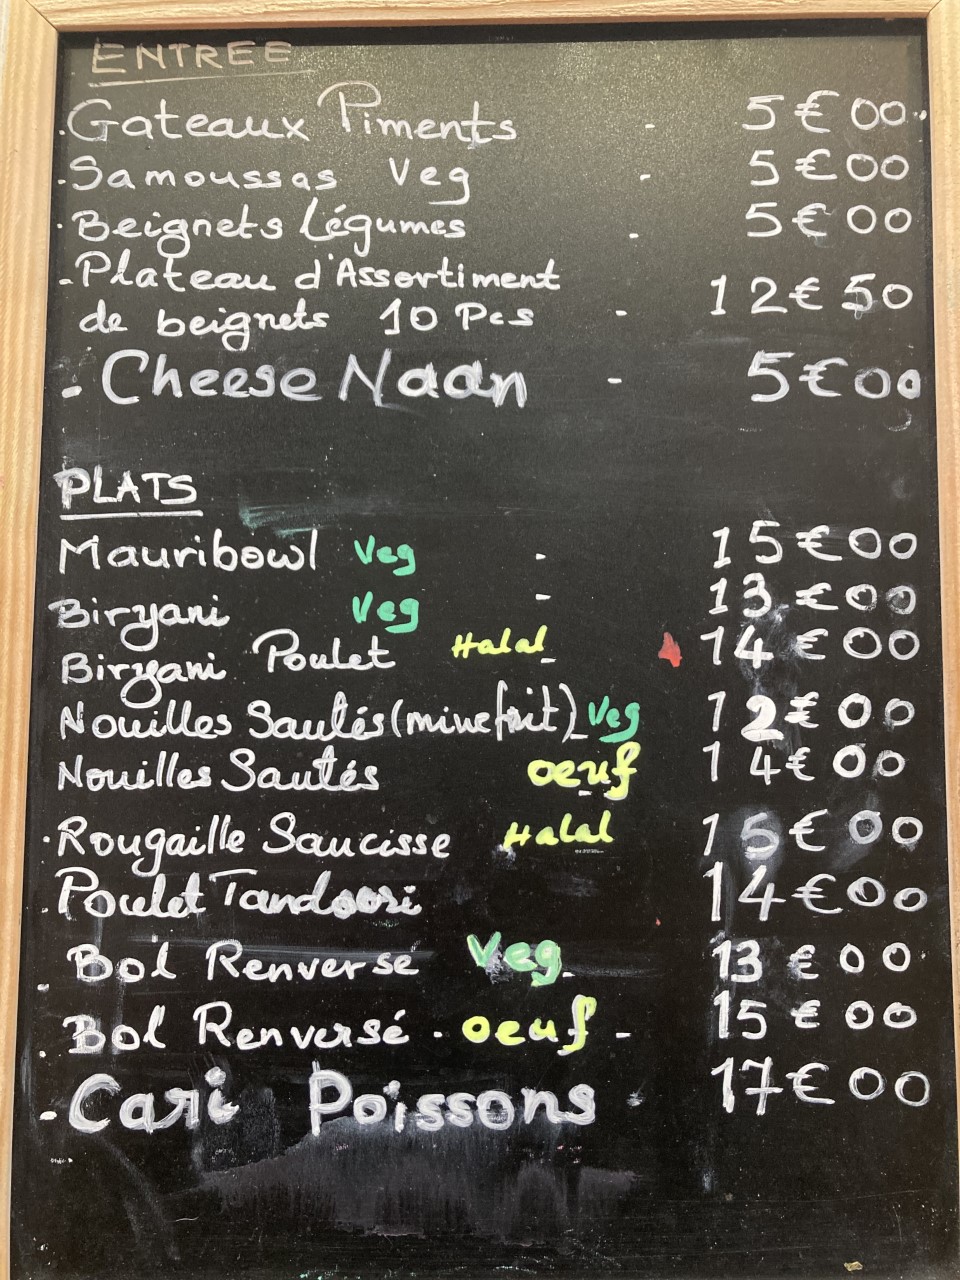 ENTREE
. Gateaux Piments - 5 € 00.
. Samoussas Veg - 5 € 00
. Beignets légumes - 5 € 00
- Plateau d'Assortiment
de beignets 10 Pcs - 12 € 50
- Cheese Naan - 5 € 00
PLATS
Mauribowl Veg - 15 € 00
Biryani Veg - 13 € 00
Biryani Poulet Halal - 14 € 00
Nouilles Sautés (mine frit) - Veg 12 € 00
Nouilles Sautés oeuf 14 € 00
. Rougaille Saucisse Halal 15 € 00
. Poulet Tandoori 14 € 00
. Bol Renversé Veg - 13 € 00
. Bol Renversé - oeuf - 15 € 00
- Cari Poissons - 17 € 00